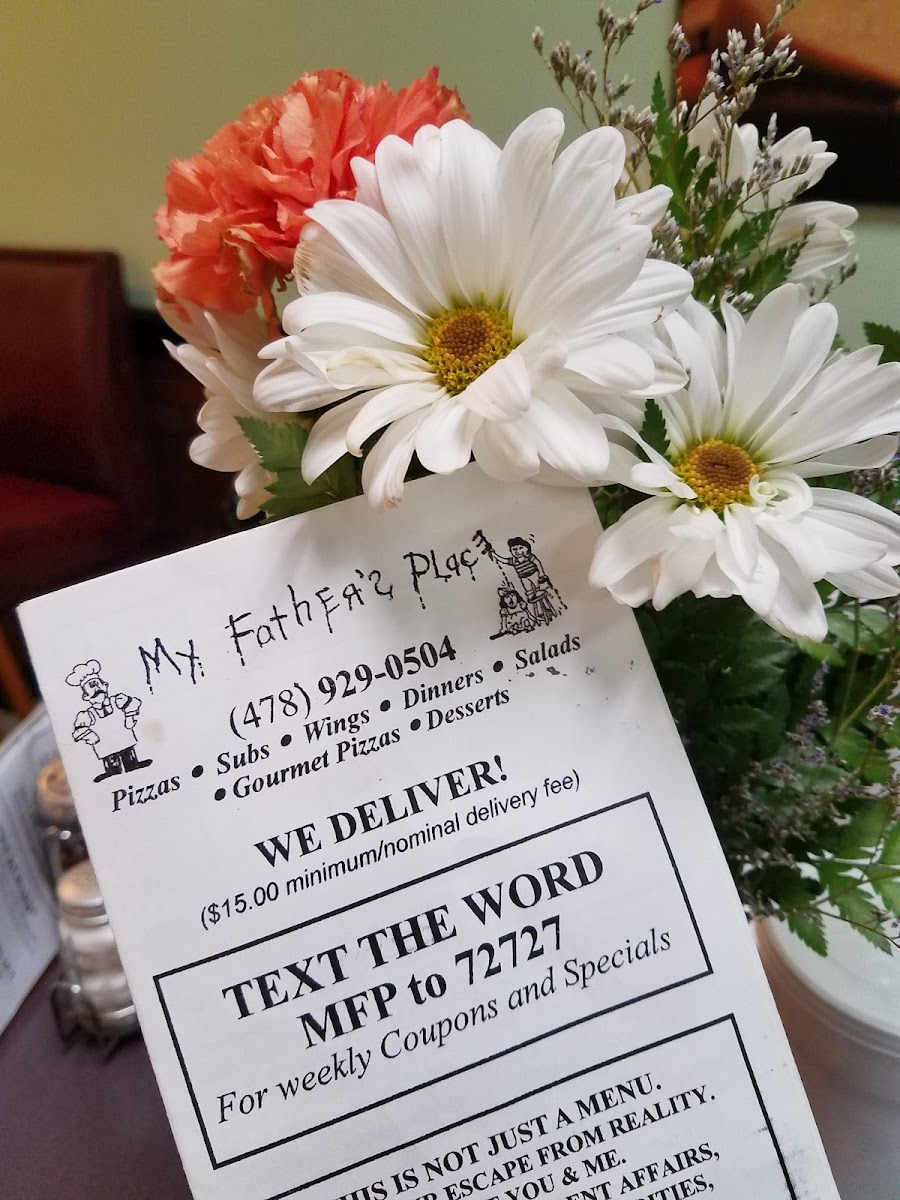 My Father's Place
(478) 929-0504
Pizzas • Subs • Wings • Dinners • Salads
• Gourmet Pizzas • Desserts
WE DELIVER!
($15.00 minimum/nominal delivery fee)
TEXT THE WORD
MFP to 72727
For weekly Coupons and Specials
THIS IS NOT JUST A MENU.
ESCAPE FROM REALITY.
YOU & ME.
AFFAIRS,